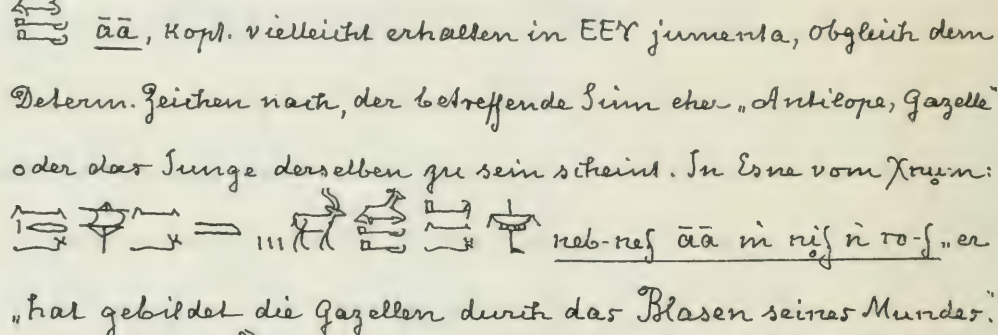 āā, Kopt. vielleicht erhalten in ΕΕΥ jumenta, obgleich dem
Determ. Zeichen nach, der betreffende Sinn eher „Antilope, Gazelle“
oder das Junge derselben zu sein scheint. In Esne vom Χnum:
neb-nef āā m nif n ro-f „er
„hat gebildet die Gazellen durch das Blasen seines Mundes.“